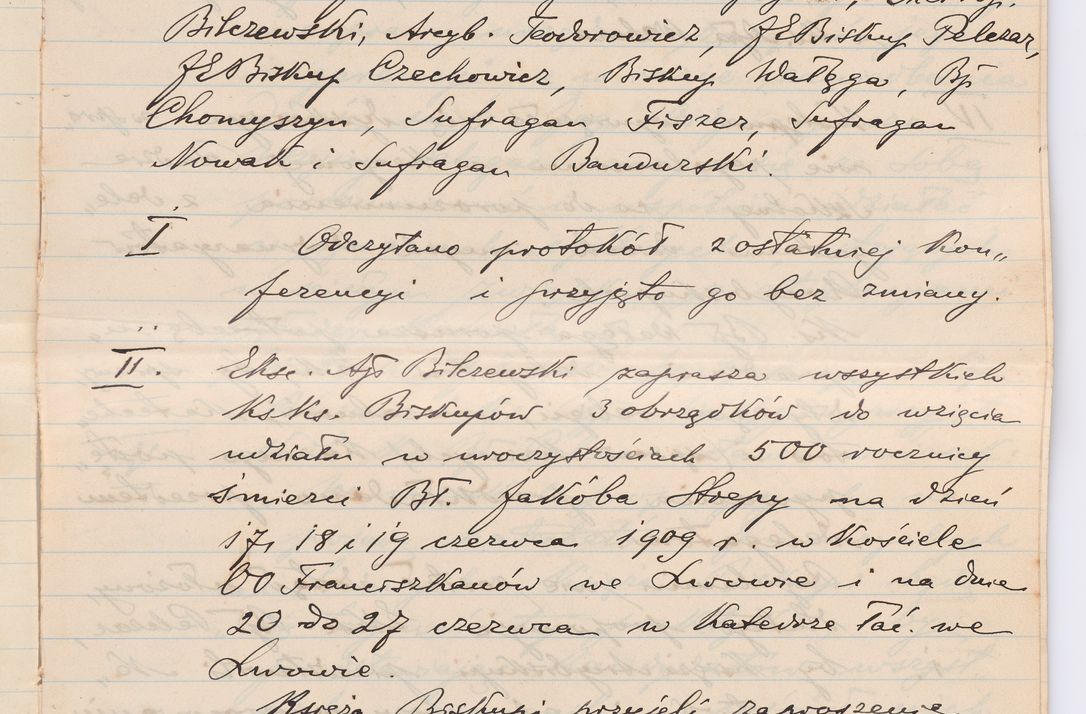 Bilczewski, Arcyb. Teodorowicz, JEBiskup Pelczar,
JEBiskup Czechowicz, Biskup Wałęga, Bp
Chomyszyn, Sufragan Fiszer, Sufragan
Nowak i Sufragan Bandurski.
I Odczytano protokół z ostatniej kon„
ferencyi i przyjęto go bez zmiany.
II. Eksc. Aps Bilczewski zaprasza wszystkich
Ks Ks. Biskupów 3 obrządków do wzięcia
udziału w uroczystościach 500 rocznicy
śmierci Bł. Jakóba Strepy na dzień
17, 18 i 19 czerwca 1909 r. w Kościele
OO Franciszkanów we Lwowie i na dnie
20 do 27 czerwca w Katedrze łać. we
Lwowie.
Księża Biskupi przyjęli zaproszenie